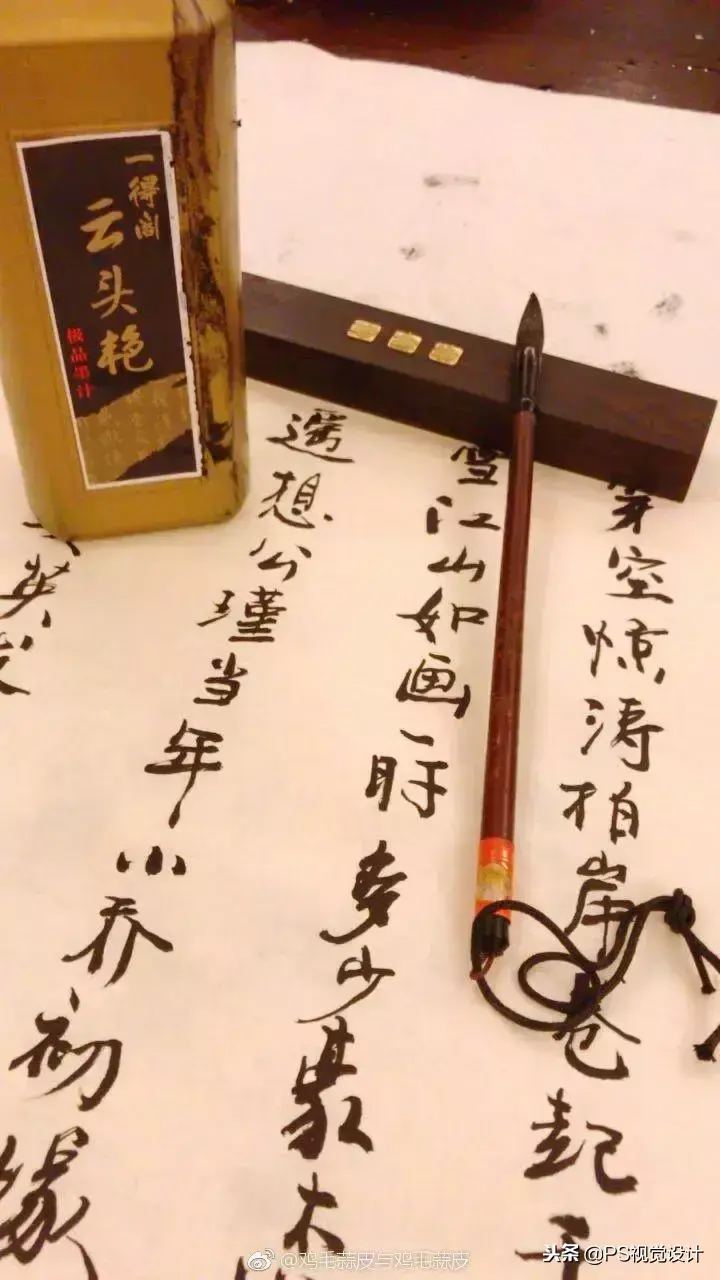 一得阁
云头艳
极品墨汁
穿空惊涛拍岸卷起千
雪江山如画一时多少
遥想公瑾当年小乔初
英发
@鸡毛蒜皮与鸡毛蒜皮
头条 @PS视觉设计